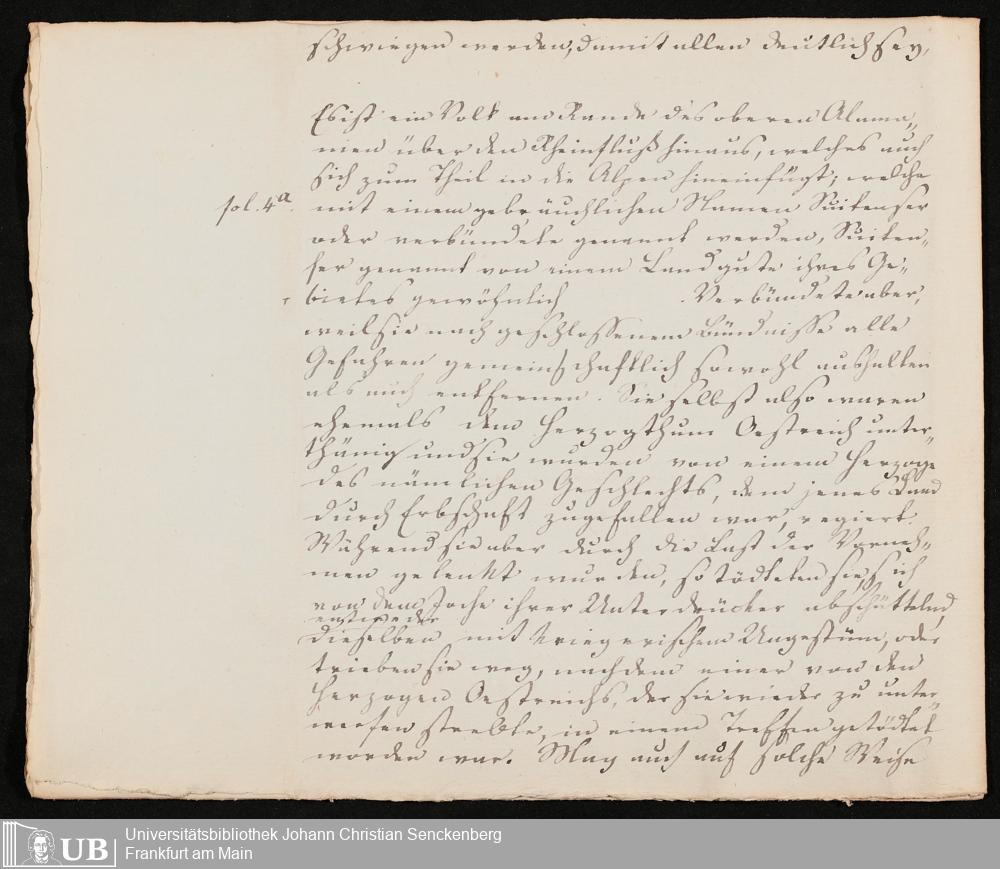 schwiegen werden, damit allen deutlich sey,
Es ist ein Volk am Rande des oberen Alama„
nien über den Rheinfluß hinaus, welches auch
sich zum Theil in die Alpen hineinfügt; welche
fol. 4a. mit einem gebräuchlichen Namen Suitenser
oder verbündete genannt werden, Suiten„
ser genannt von einem Landgute ihres Ge„
bietes gewöhnlich . Verbündete aber,
weil sie nach geschlossenem Bündnisse alle
Gefahren gemeinschaftlich sowohl aushalten
als auch entfernen. Sie selbst also waren
ehemals dem Herzogthum Oestreich unter„
thänig und sie wurden von einem Herzoge
des nämlichen Geschlechts, dem jenes Land
durch Erbschaft zugefallen war, regiert.
Während sie aber durch die Last der Vorneh„
men gelenkt wurden, so tödteten sie sich
von dem Joche ihrer Unterdrücker abschüttelnd,
entweder
dieselben mit kriegerischem Ungestüm, oder
trieben sie weg, nachdem einer von den
Herzogen Oestreichs, der sie wieder zu unter„
werfen strebte, in einem Treffen getödtet
worden war. Mag auch auf solche Weise
UB Universitätsbibliothek Johann Christian Senckenberg
Frankfurt am Main